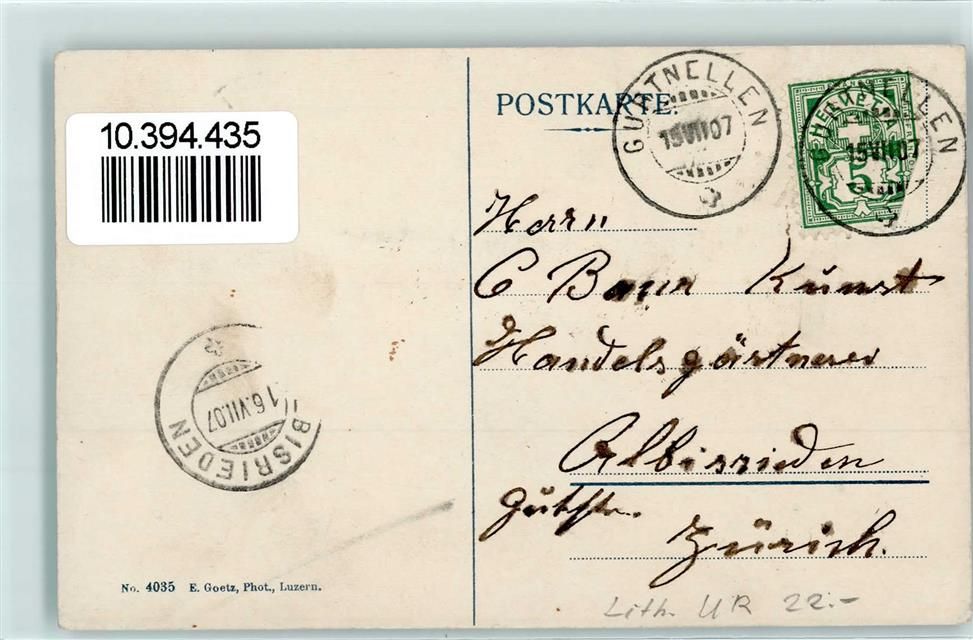 10.394.435
POSTKARTE.
GURTNELLEN
15 VII 07
HELVETIA
5
GURTNELLEN
15 VII 07
Herrn
C Baur Kunst
Handelsgärtnerei
Albisrieden
Gütstr.
Zürich.
ALBISRIEDEN
16.VII.07
No. 4035 E. Goetz, Phot., Luzern.
Lith. UR 22.-